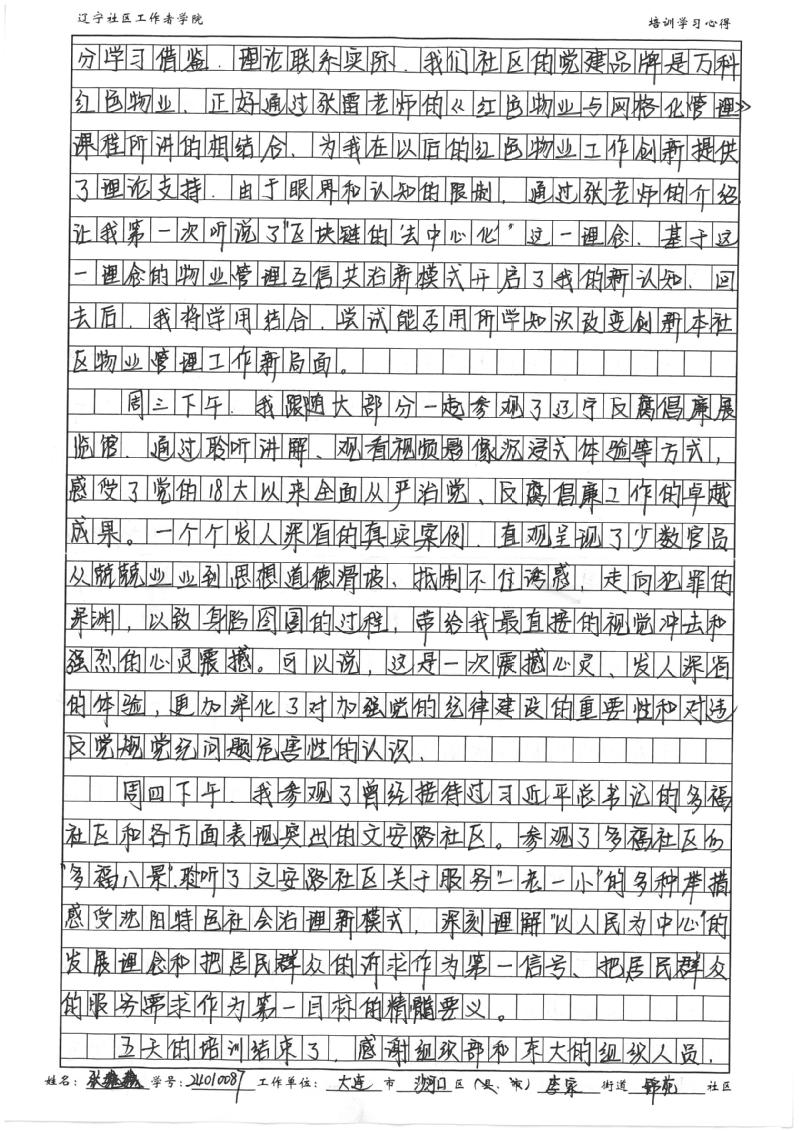 辽宁社区工作者学院 培训学习心得
分学习借鉴.理论联系实际.我们社区的党建品牌是万科
红色物业.正好通过张雷老师的《红色物业与网格化管理》
课程所讲的相结合.为我在以后的红色物业工作创新提供
了理论支持.由于眼界和认知的限制.通过张老师的介绍
让我第一次听说了"区块链的'去中心化'"这一理念.基于这
一理念的物业管理互信共治新模式开启了我的新认知.回
去后.我将学用结合.尝试能否用所学知识改变创新本社
区物业管理工作新局面。
周三下午.我跟随大部分一起参观了辽宁反腐倡廉展
览馆.通过聆听讲解、观看视频影像沉浸式体验等方式,
感受了党的18大以来全面从严治党、反腐倡廉工作的卓越
成果。一个个发人深省的真实案例.直观呈现了少数官员
从兢兢业业到思想道德滑坡、抵制不住诱惑.走向犯罪的
深渊,以致身陷囹圄的过程,带给我最直接的视觉冲击和
强烈的心灵震撼。可以说,这是一次震撼心灵、发人深省
的体验,更加深化了对加强党的纪律建设的重要性和对违
反党规党纪问题危害性的认识.
周四下午.我参观了曾经接待过习近平总书记的多福
社区和各方面表现突出的文安路社区。参观了多福社区的
"多福八景".聆听了文安路社区关于服务"一老一小"的多种举措
感受沈阳特色社会治理新模式,深刻理解"以人民为中心"的
发展理念和把居民群众的诉求作为第一信号、把居民群众
的服务需求作为第一目标的精髓要义。
五天的培训结束了.感谢组织部和东大的组织人员.
姓名: 学号:21010087 工作单位: 大连 市 沙河口 区(县、市) 李家 街道 锦苑 社区